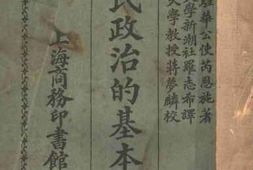 駐華公使芮恩施著
學新潮社羅志希譯
大學教授蔣夢麟校
民政治的基本
上海商務印書館